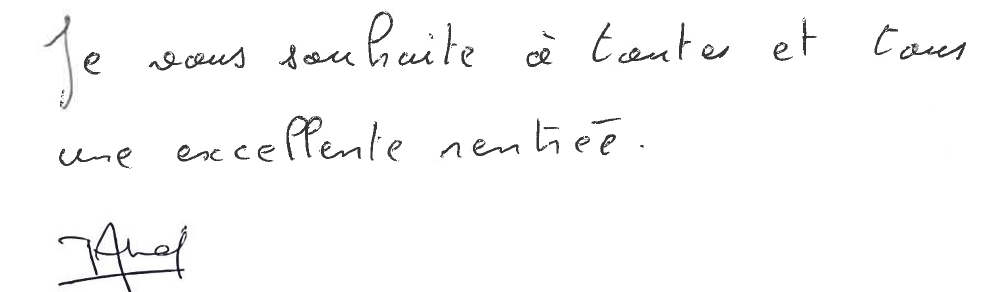 Je vous souhaite à toutes et tous
une excellente rentrée.